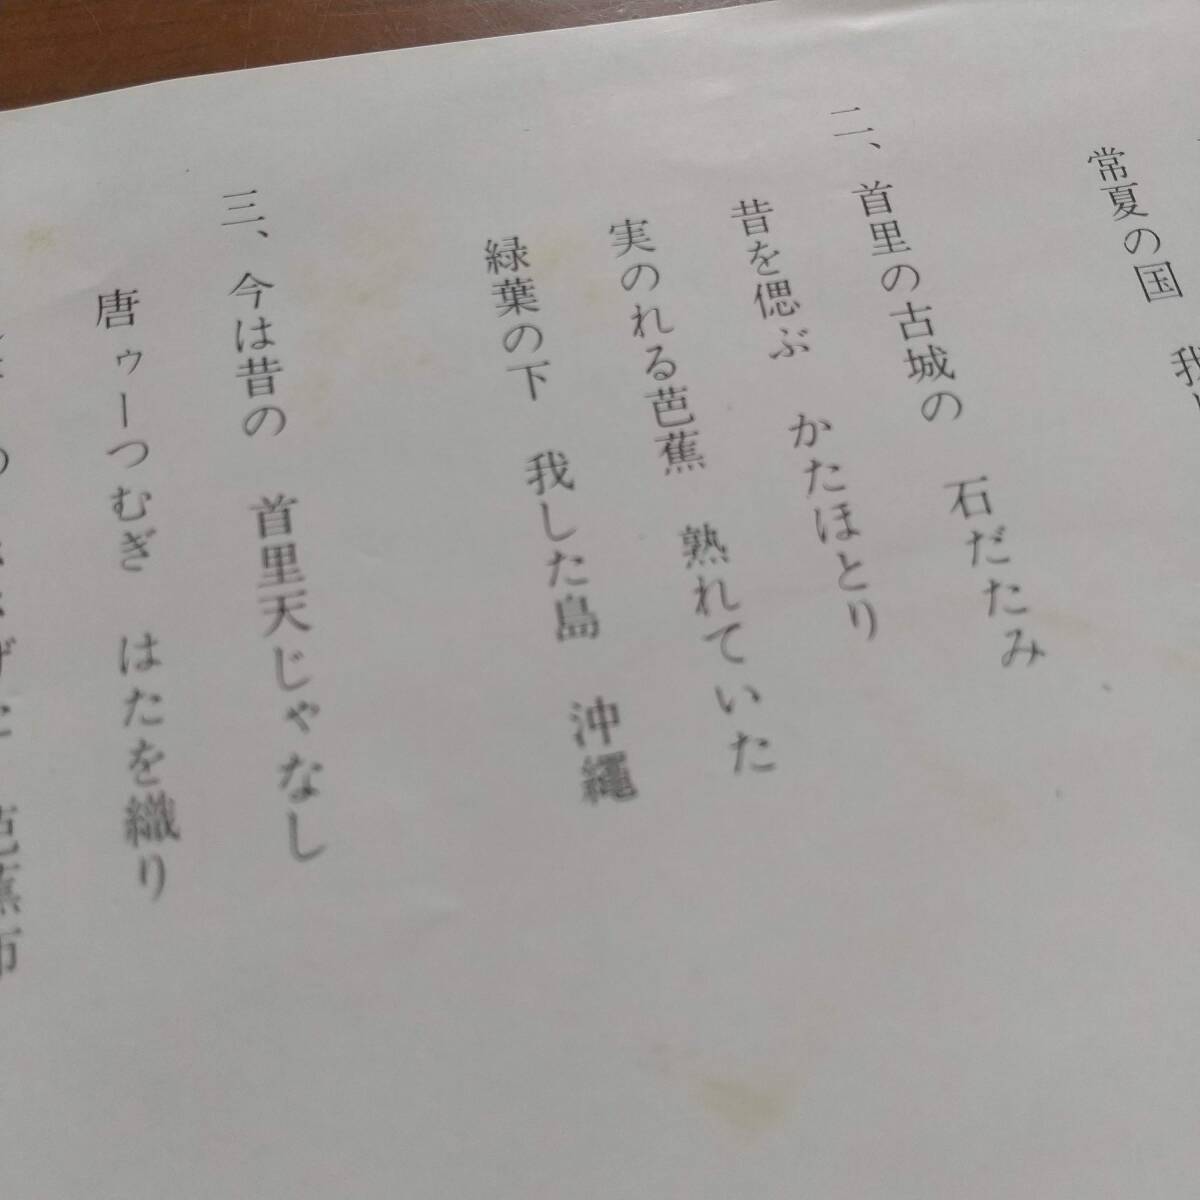 常夏の国　我し
二、首里の古城の　石だたみ
昔を偲ぶ　かたほとり
実のれる芭蕉　熟れていた
緑葉の下　我した島　沖縄
三、今は昔の　首里天じゃなし
唐ゥーつむぎ　はたを織り
芭蕉布